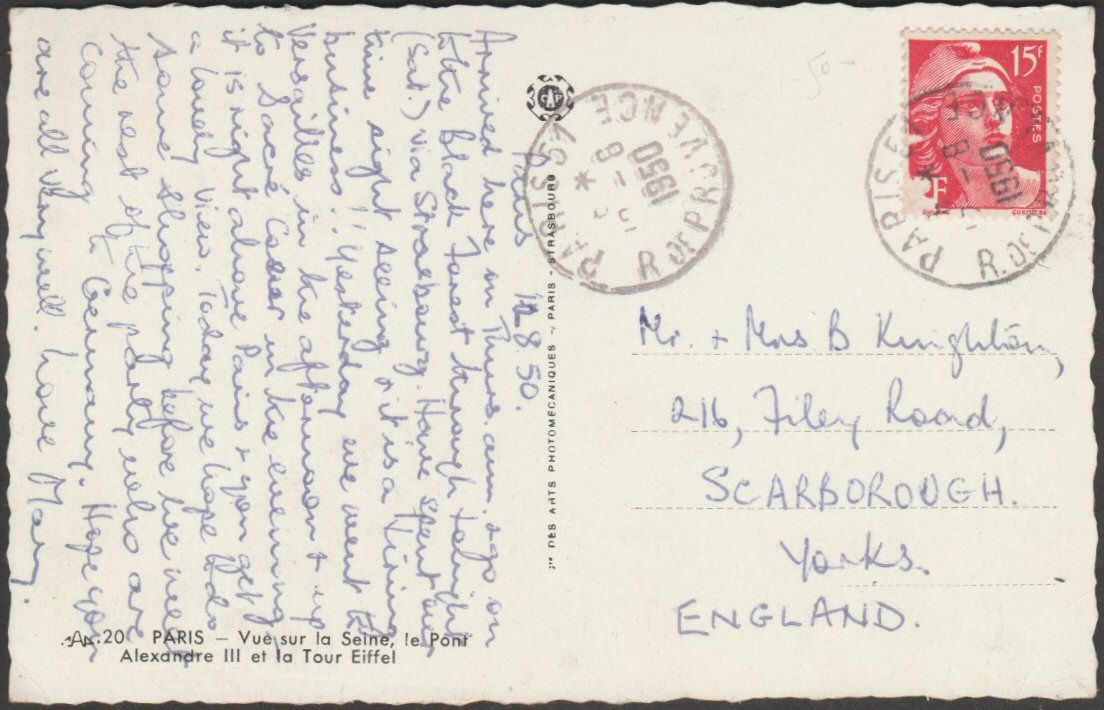 Paris 12.8.50.
Arrived here on Thurs. a.m. & go on
to the Black Forest tonight
(Sat.) via Strasbourg. Have spent our
time sight seeing & it is a tiring
business!! Yesterday we went to
Versailles in the afternoon & up
to Sacré Coeur in the evening,
it is right above Paris & you get
a lovely view. Today we hope to do
some shopping before we meet
the rest of the party who are
coming to Germany. Hope you
are all very well. Love Mary.
20 PARIS – Vue sur la Seine, le Pont
Alexandre III et la Tour Eiffel
DES ARTS PHOTOMECANIQUES - PARIS - STRASBOURG
PARIS
R. DE PROVENCE
8
1950
15F
POSTES
RF
PARIS
R. DE
8
1950
Mr. + Mrs B Knighton,
216, Filey Road,
SCARBOROUGH.
Yorks.
ENGLAND.
-50-